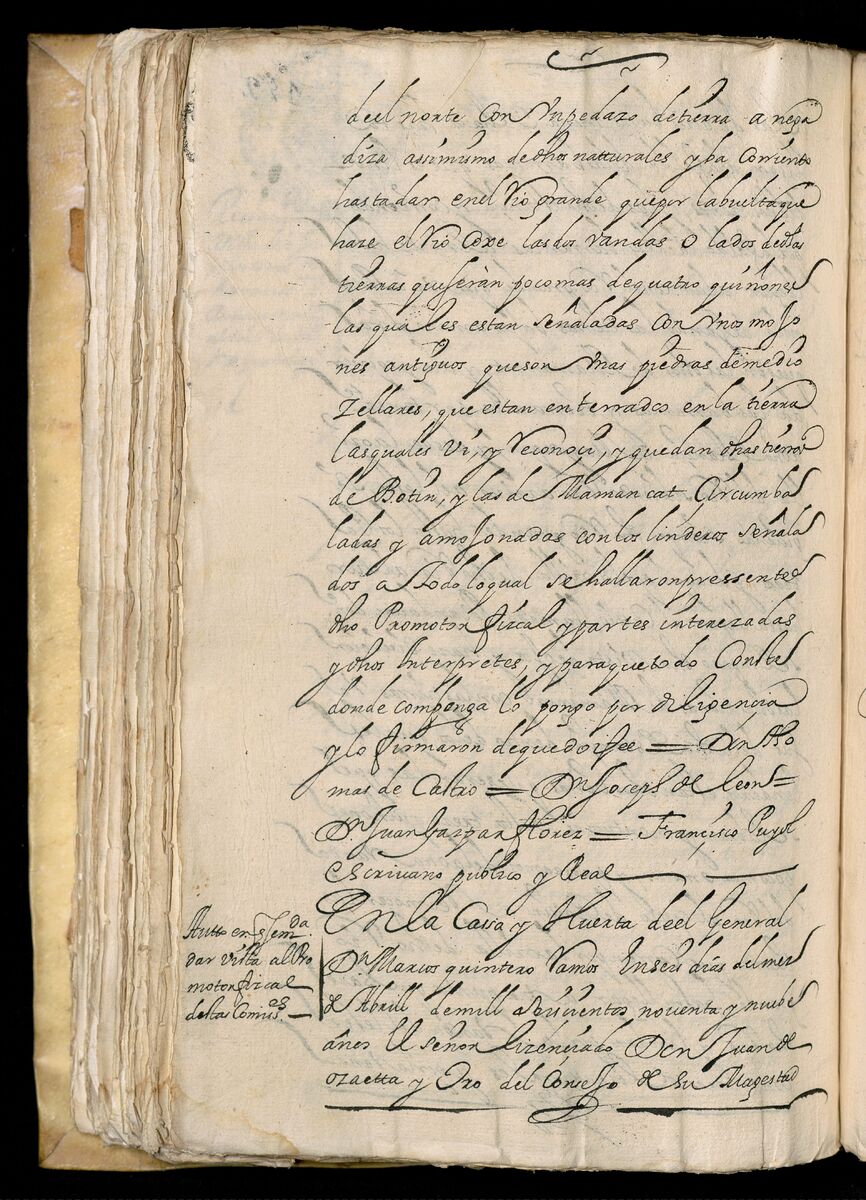 deel norte con Vnpedazo detierra anega
diza assimismo dedhos natturales y ba Corriento
hasta dar enel Rio grande quepor labueltaque
haze el Rio Coxe lasdos Vandas o lados dedhas
tierras queseràn pocomas dequatro quiñones
las quales estan señaladas con Vnos mojo
nes antiguos queson Vnas piedras demedio
Zellares, que estan enterrados en la tierra
lasquales Vi, y Reconoçi, y quedan dhas tierras
de Botin, y las de Mamancat Circumba
ladas y amojonadas conlos linderos señala
dos a todo loqual sehallaronpressentes
dho Promotor fizcal y partes interezadas
y dhos Interpretes, y paraquetodo Conste
donde combenga lo pongo por diligencia
y lo firmaron dequedoifee = Don Tho
mas de Castro = Dn Joseph de leon =
Dn Juan Gaspar florez = Françisco Puyol
escrivano publico y Real
Autto en q̃ se m.da
dar vista al Pro
motor fizcal
destas Comis.es
En la Cassa y Huerta deel General
Dn Marcos quintero Ramos Enseis dias del mes
de Abrill demill Seiscientos noventa y nuebe
años El señor lizenciado Don Juan de
ozaetta y Oro del Consejo de Su Magestad